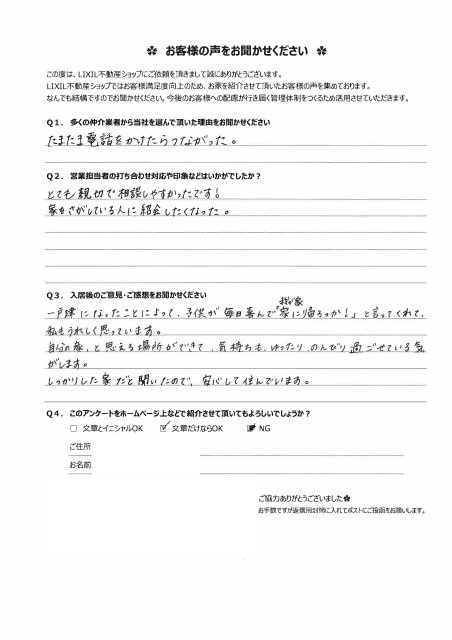 ✿ お客様の声をお聞かせください ✿
この度は、LIXIL不動産ショップにご依頼を頂きまして誠にありがとうございます。
LIXIL不動産ショップではお客様満足度向上のため、お家を紹介させて頂いたお客様の声を集めております。
なんでも結構ですのでお聞かせください。今後のお客様への配慮が行き届く管理体制をつくるため活用させていただきます。
Q1．多くの仲介業者から当社を選んで頂いた理由をお聞かせください
たまたま電話をかけたらつながった。
Q2．営業担当者の打ち合わせ対応や印象などはいかがでしたか？
とても親切で相談しやすかったです！
家をさがしている人に紹介したくなった。
Q3．入居後のご意見・ご感想をお聞かせください
我が家
一戸建になったことによって、子供が毎日喜んで「家に帰ろっか！」と言ってくれて、
私もうれしく思っています。
自分の家、と思える場所ができて、気持ちも、ゆったり、のんびり過ごせている気
がします。
しっかりした家だと聞いたので、安心して住んでいます。
Q4．このアンケートをホームページ上などで紹介させて頂いてもよろしいでしょうか？
□ 文章とイニシャルOK ☑ 文章だけならOK NG
ご住所
お名前
ご協力ありがとうございました✿
お手数ですが返信用封筒に入れてポストにご投函をお願いします。